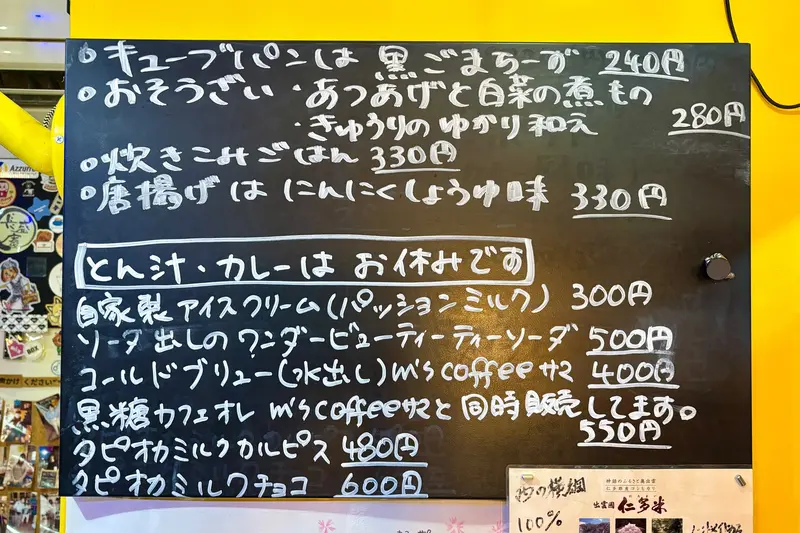 ・キューブパンは 黒ごまちーず 240円
・おそうざい ・あつあげと白菜の煮もの
・きゅうりのゆかり和え 280円
・炊きこみごはん 330円
・唐揚げは にんにくしょうゆ味 330円
とん汁・カレーは お休みです
自家製アイスクリーム(パッションミルク) 300円
ソーダ出しのワンダービューティーティーソーダ 500円
コールドブリュー(水出し)m's coffeeサマ 400円
黒糖カフェオレ m's coffeeサマと同時販売してます。
550円
タピオカミルクカルピス 480円
タピオカミルクチョコ 600円
西の横綱
100%
神話のふるさと奥出雲
仁多郡産コシヒカリ
出雲國 仁多米
Azzurri